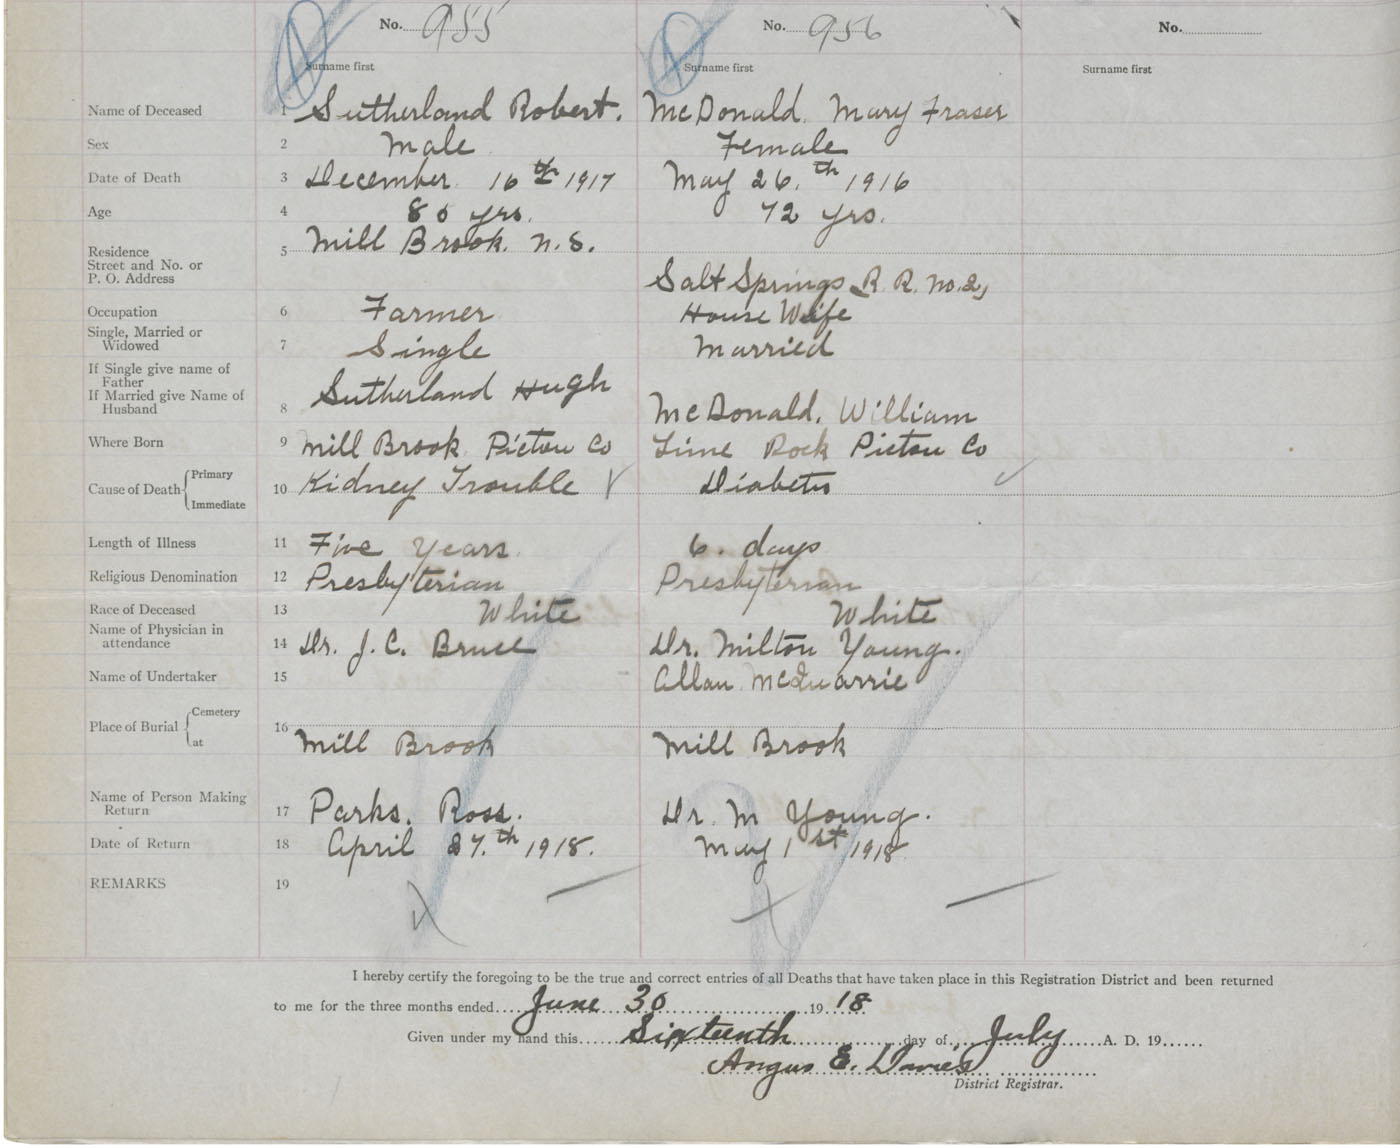 No. 955 No. 956 No.
Surname first Surname first Surname first
Name of Deceased 1 Sutherland Robert. McDonald. Mary Fraser
Sex 2 Male Female
Date of Death 3 December. 16th 1917 May 26.th 1916
Age 4 80 yrs. 72 yrs.
Residence
Street and No. or
P. O. Address 5 Mill Brook. N.S. Salt Springs R. R. No. 2,
Occupation 6 Farmer House Wife
Single, Married or
Widowed 7 Single Married
If Single give name of
Father
If Married give Name of
Husband 8 Sutherland Hugh McDonald. William
Where Born 9 Mill Brook Pictou Co Lime Rock Pictou Co
Cause of Death Primary
Immediate 10 Kidney Trouble Diabetes
Length of Illness 11 Five Years 6. days
Religious Denomination 12 Presbyterian Presbyterian
Race of Deceased 13 White White
Name of Physician in
attendance 14 Dr. J. C. Bruce Dr. Milton Young.
Name of Undertaker 15 Allan McQuarrie
Place of Burial Cemetery
at 16 Mill Brook Mill Brook
Name of Person Making
Return 17 Parks. Ross. Dr. M Young.
Date of Return 18 April 27.th 1918. May 1st 1918
REMARKS 19
I hereby certify the foregoing to be the true and correct entries of all Deaths that have taken place in this Registration District and been returned
to me for the three months ended June 30 19 18
Given under my hand this Sixteenth day of July A. D. 19
Angus E. Davies
District Registrar.